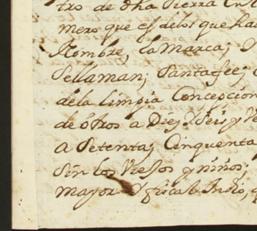 tro de dha Tierra En
mero que es delos que ha
Hombre, la Marca; 
Se llaman; Santa fee;
dela Limpia Concepcion
de otros a Diez, Seis y
a Setenta; Cinquenta
Sin los Viejos y niños;
mayor